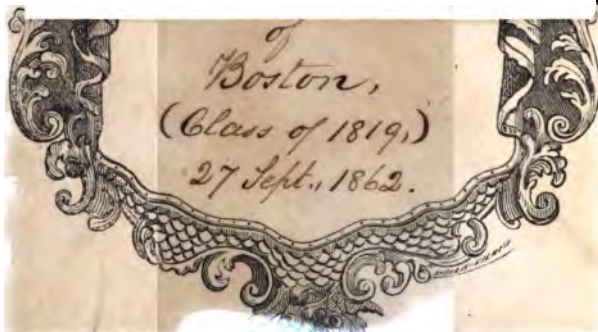 of
Boston,
(Class of 1819,)
27 Sept., 1862.